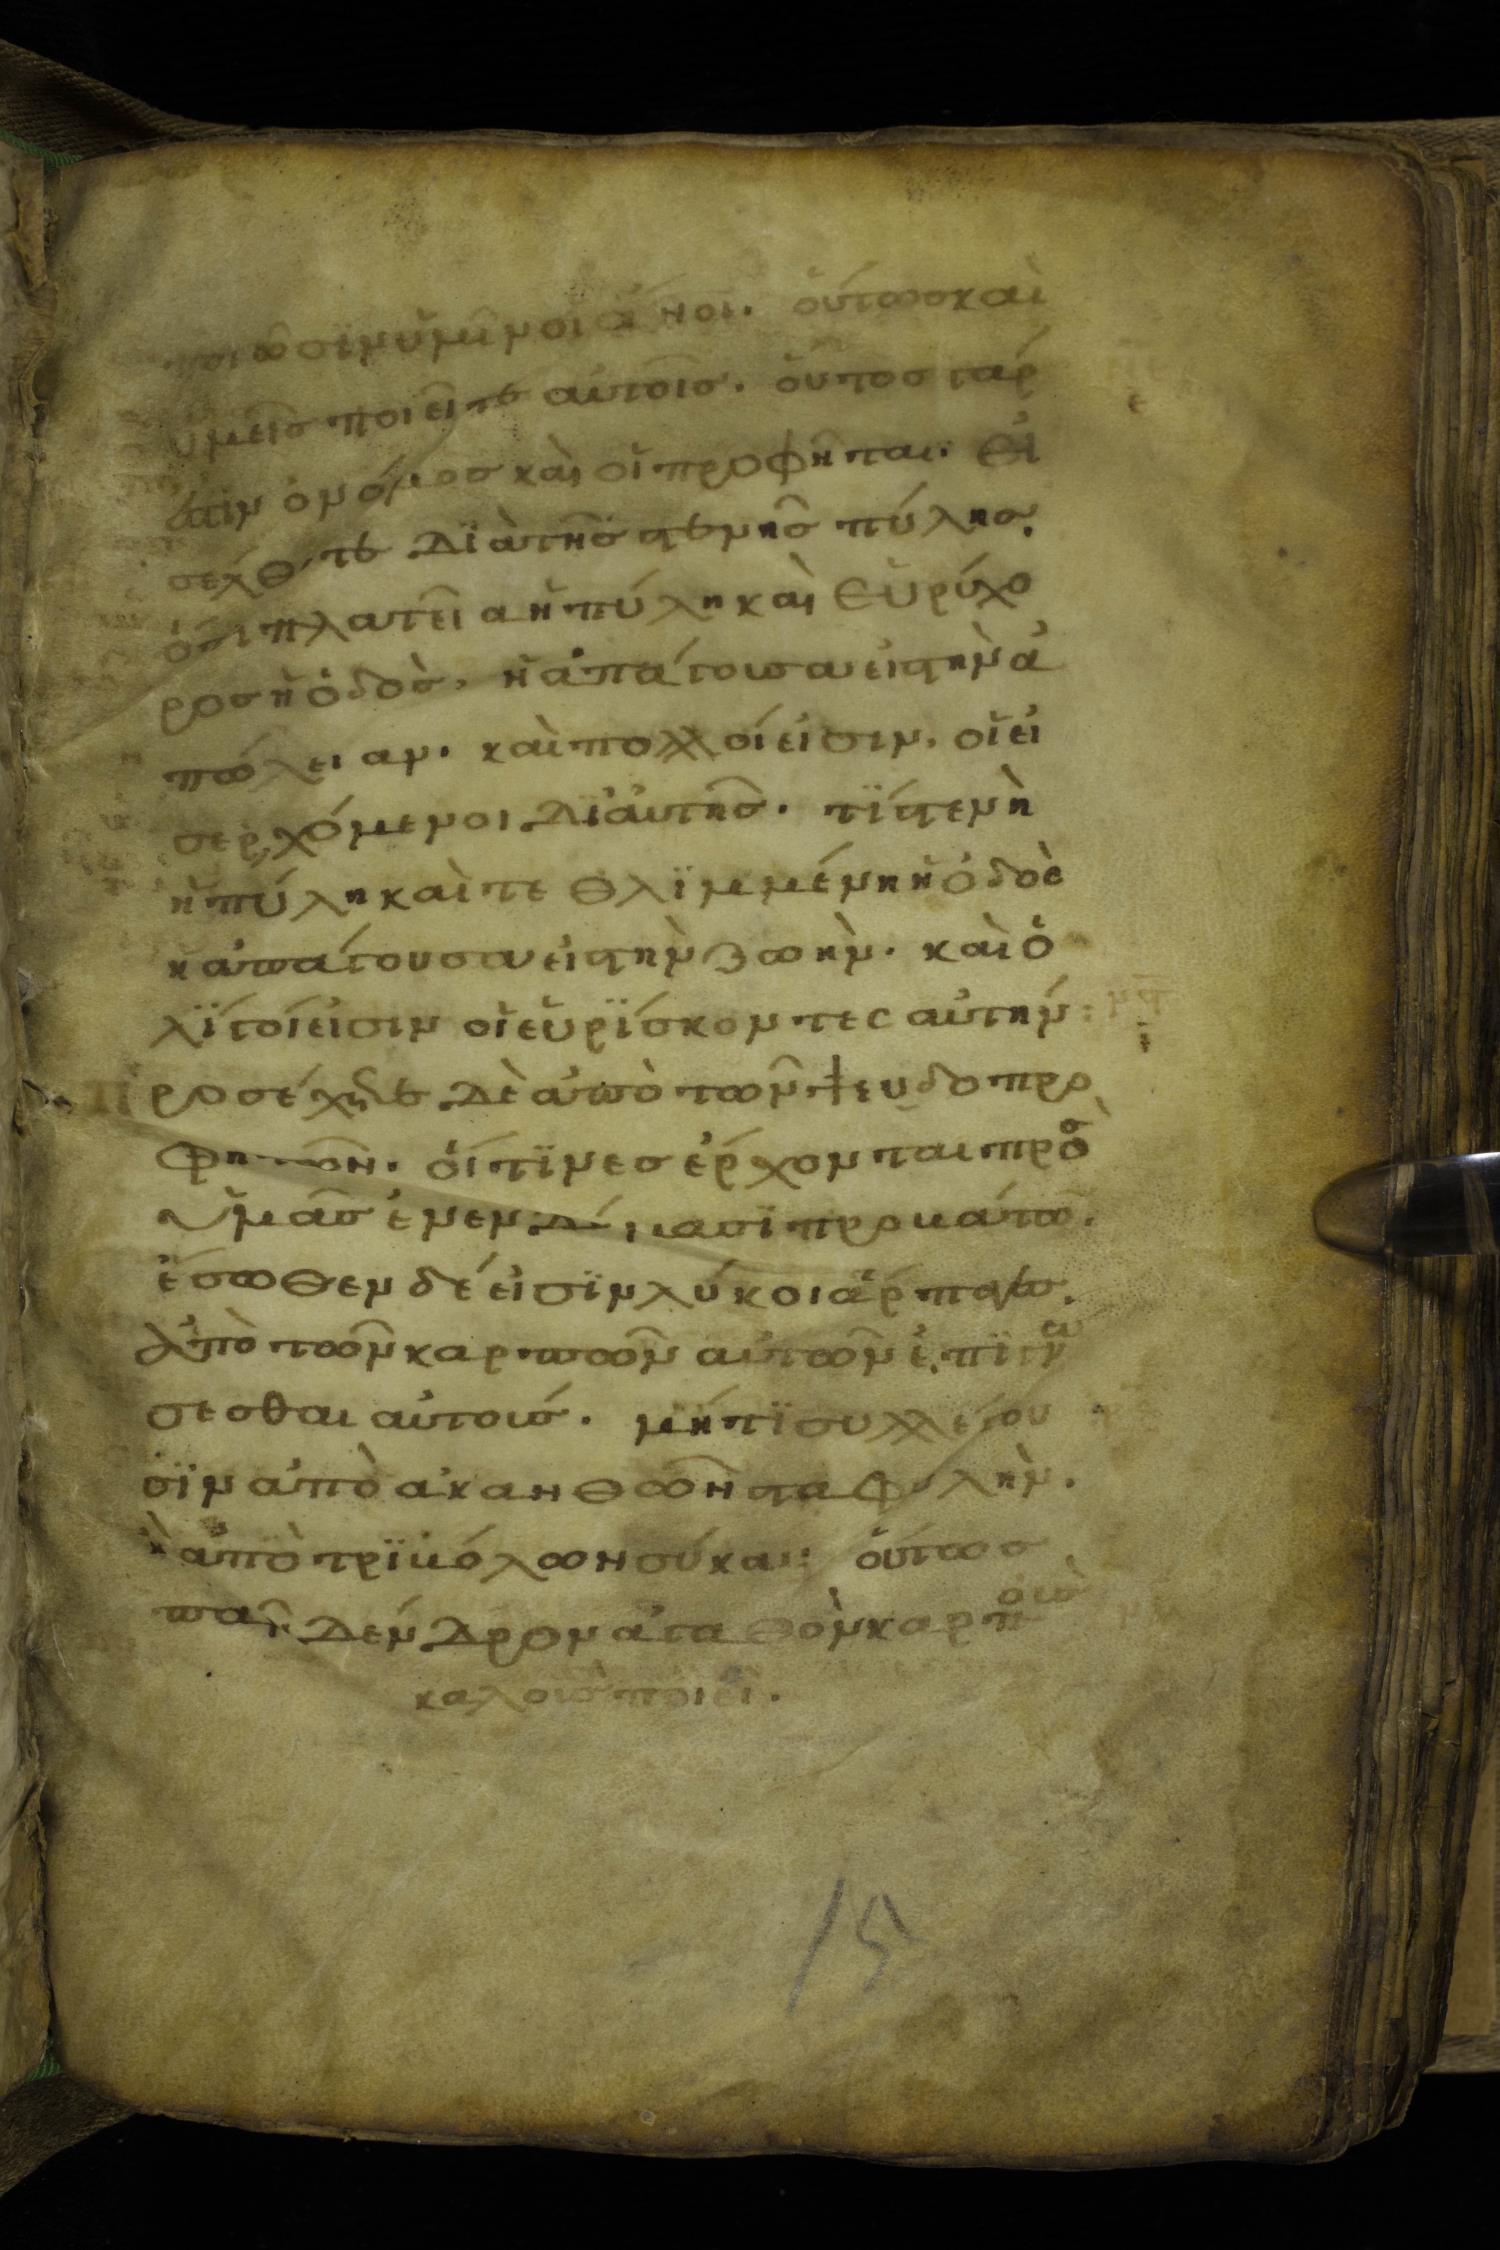 ποιῶσϊν ὑμῖν οἱ ἄνοι. οὕτωσ καὶ
ὑμεῖσ ποιεῖτε αὐτοῖσ. οὗτοσ γάρ
ἐστϊν ὁ νόμοσ καὶ οἱ προφῆται. Εἰ
σέλθετε δϊὰ τῆσ στενῆσ πύλησ.
ὅτι πλατεῖα ἡ πύλη καὶ εὐρύχο
ροσ ἡ ὁδὸσ. ἡ ἀπάγουσα εἰς τὴν ἀ
πώλειαν. καὶ πολλοί εἰσιν. οἱ εἰ
σερχόμενοι δϊ αὐτῆσ. τϊ στενὴ
ἡ πύλη καὶ τεθλϊμμένη ἡ ὁδὸσ
ἡ ἀπάγουσα εἰς τὴν ζωὴν. καὶ ὀ
λϊγοί εἰσιν οἱ εὑρϊσκοντες αὐτήν:
Προσέχετε δὲ ἀπὸ τῶν ψευδοπρο
φητῶν. οἵτϊνεσ ἔρχονται πρὸσ
ὑμᾶσ ἐν ενδύμασϊ προβάτω̅.
ἔσωθεν δέ εἰσϊν λύκοι ἅρπαγεσ.
Ἀπὸ τῶν καρπῶν αὐτῶν ἐπϊγνω
σεσθαι αὐτούσ. μήτϊ συλλέγου
σϊν ἀπὸ ἀκανθῶν σταφυλὴν.
ἢ ἀπὸ τρϊβόλων σύκα: οὕτωσ
πᾶν δένδρον ἀγαθὸν καρποὺσ
καλοὺσ ποιεῖ.
15